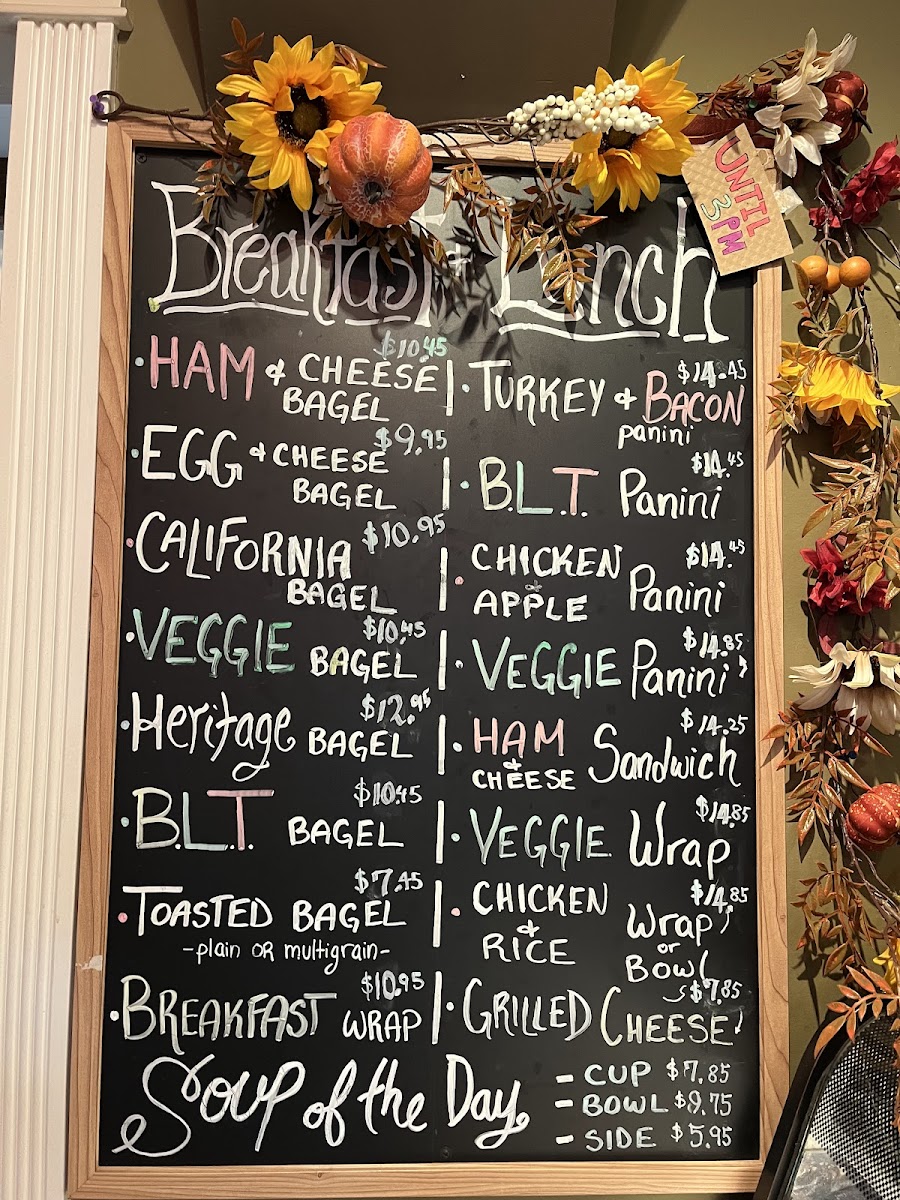 UNTIL
3 PM
Breakfast + Lunch
$10.45
HAM & CHEESE
BAGEL
$9.95
EGG & CHEESE
BAGEL
$10.95
CALIFORNIA
BAGEL
$10.45
VEGGIE BAGEL
$12.95
Heritage BAGEL
$10.45
B.L.T. BAGEL
$7.45
TOASTED BAGEL
-plain OR multigrain-
$10.95
BREAKFAST WRAP
$14.45
TURKEY & BACON
panini
$14.45
B.L.T. Panini
$14.45
CHICKEN
&
APPLE Panini
$14.85
VEGGIE Panini
$14.25
HAM
&
CHEESE Sandwich
$14.85
VEGGIE Wrap
$14.85
CHICKEN
&
RICE
Wrap
or
Bowl
$7.85
GRILLED CHEESE!
Soup of the Day
- CUP $7.85
- BOWL $9.75
- SIDE $5.95